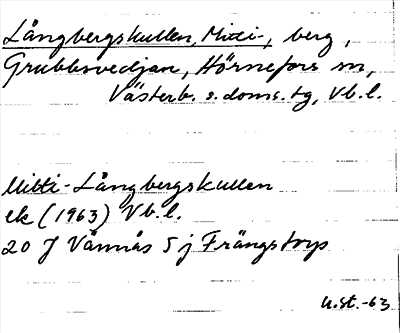 Långbergskullen, Mitti-, berg,
Grubbsvedjan, Hörnefors sn,
Västerb. s. doms. tg, Vb. l.
Mitti-Långbergskullen
ek (1963) Vb. l.
20 J Vännäs 5 j Frängstorp
U.st.-63